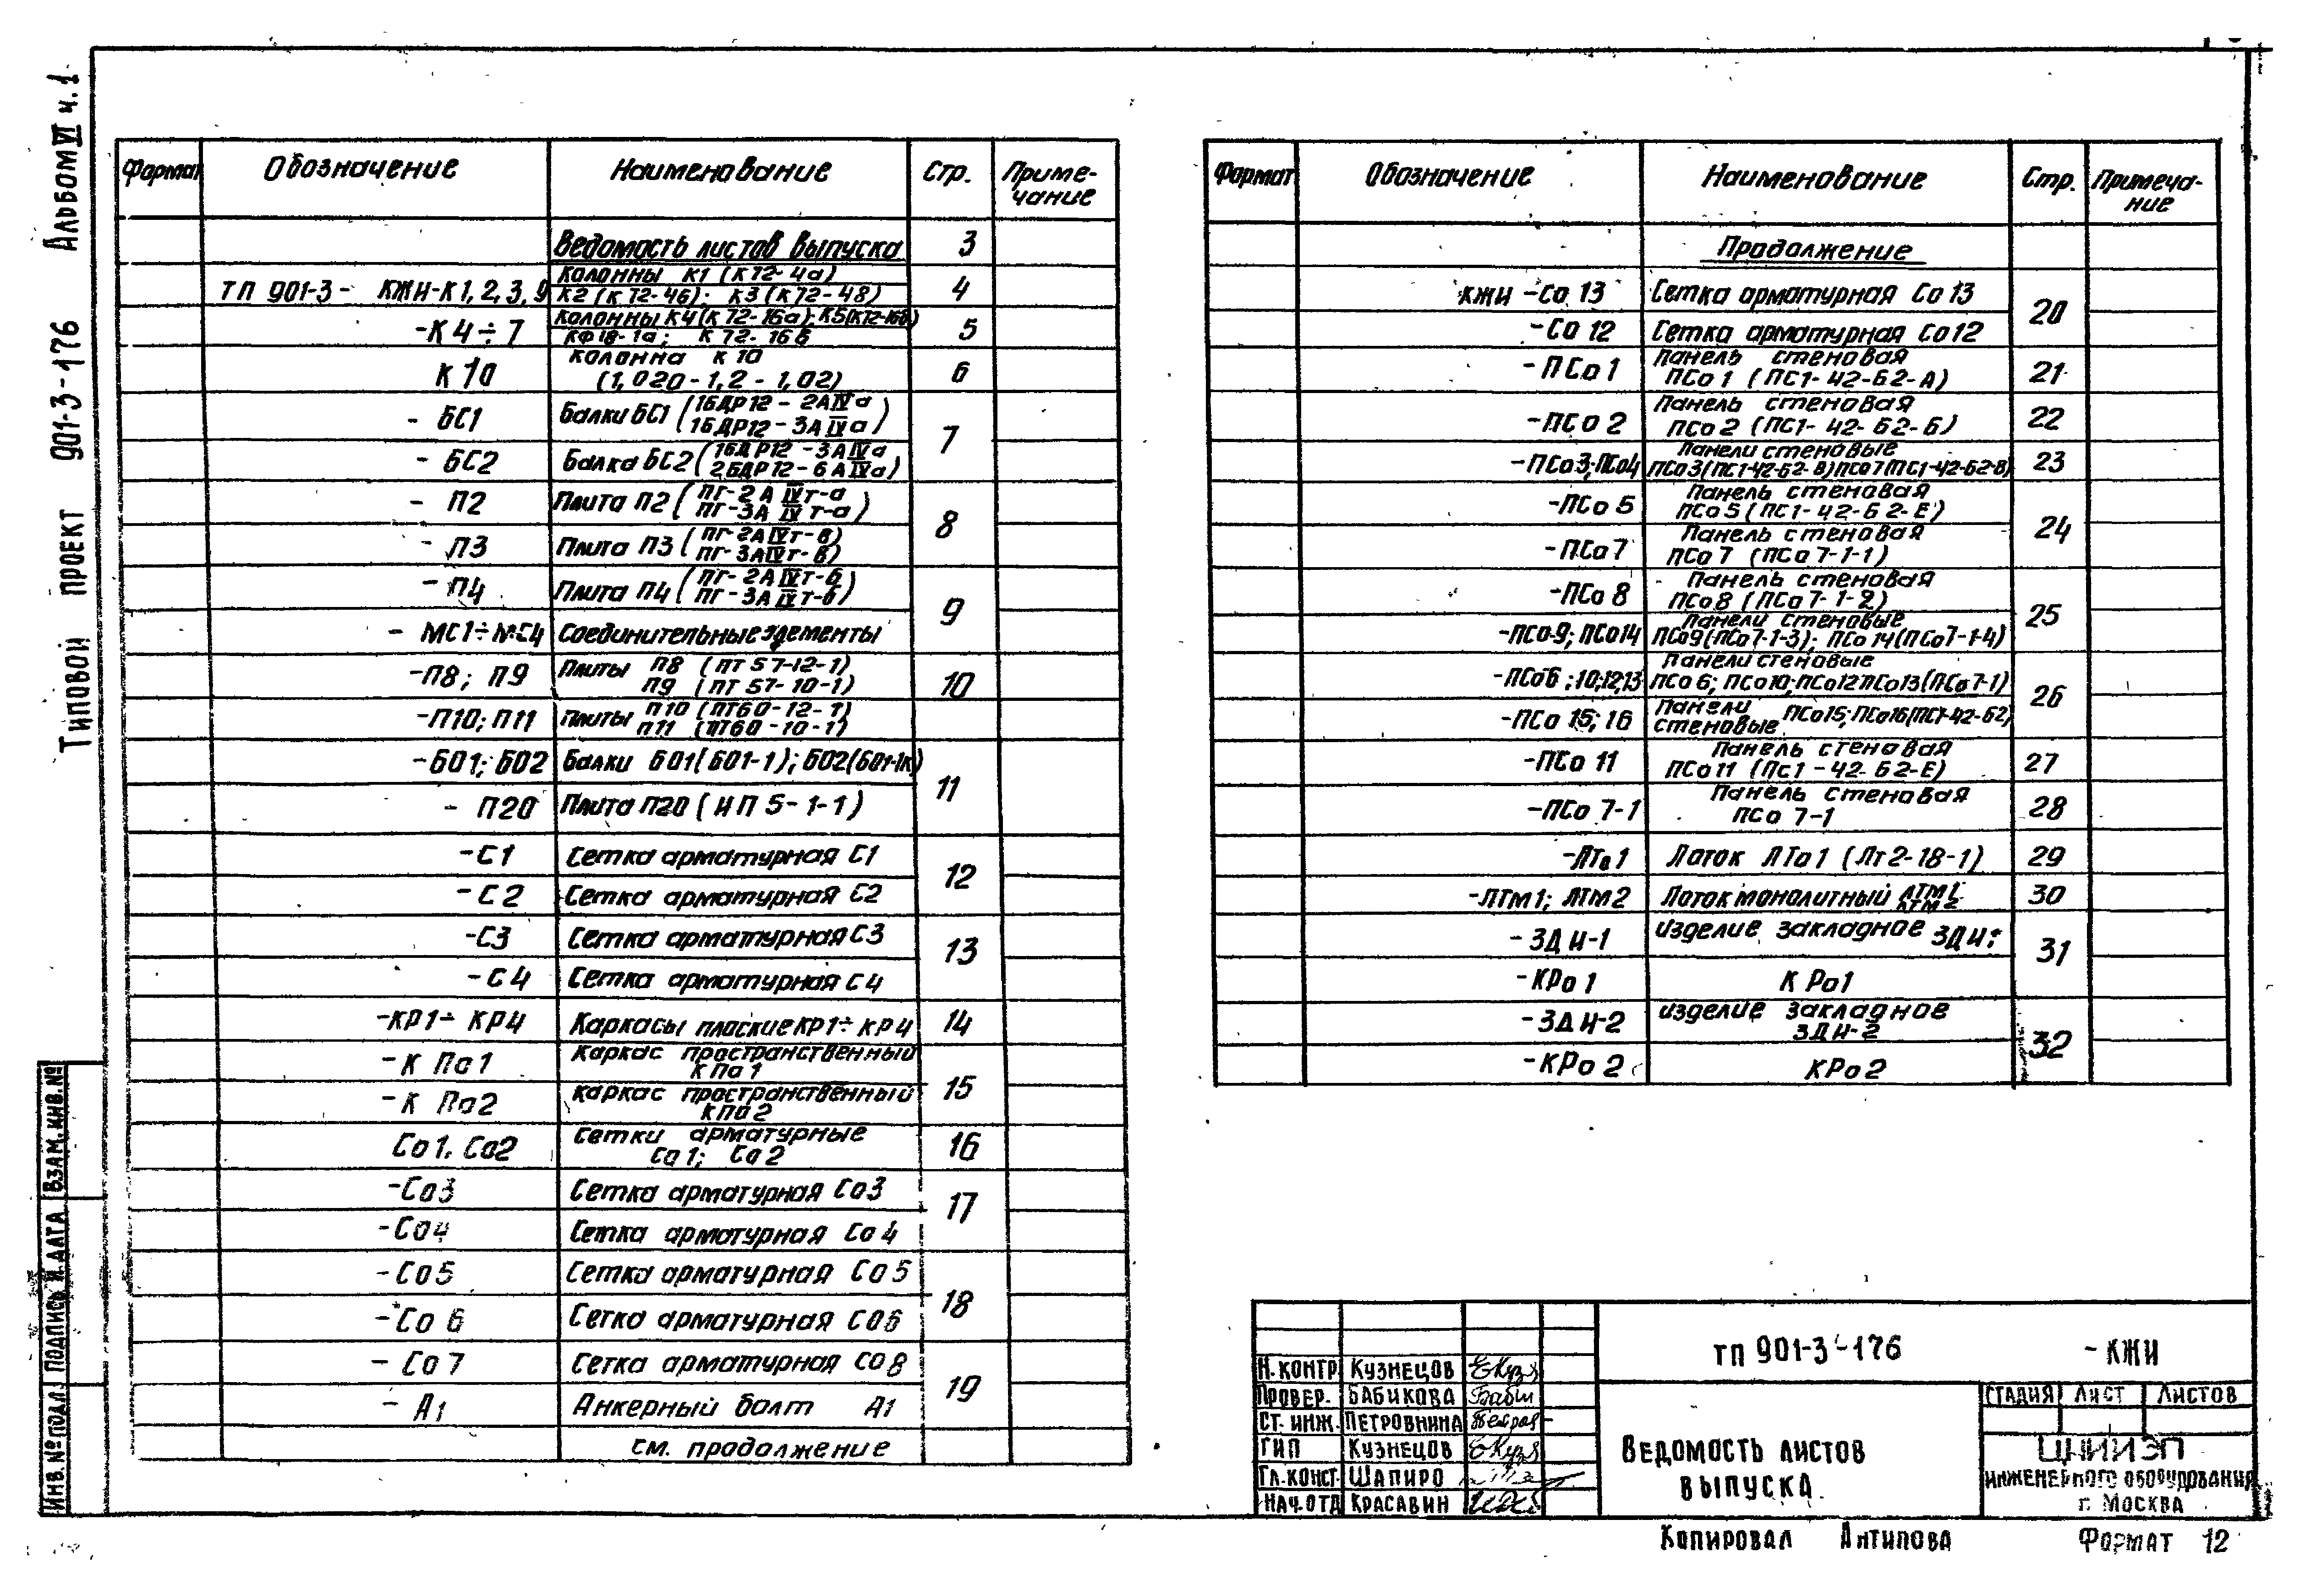 Типовой проект 901-3-176 Альбом VI ч.1
Формат Обозначение Наименование Стр. Приме-
чание
Ведомость листов выпуска 3
ТП 901-3- КЖИ-К1,2,3,9 Колонны К1 (К72-4а) 4
К2 (К72-4б); К3 (К72-48)
-К4÷7 Колонны К4 (К72-16а); К5(К72-16б) 5
КФ18-1а; К72-16в
К10 Колонна К10 6
(1,020-1,2-1,02)
- БС1 Балки БС1 (1БДР12-2АIVа 7
1БДР12-3АIVа)
- БС2 Балка БС2 (1БДР12-3АIVа
2БДР12-6АIVа)
- П2 Плита П2 (ПГ-2АIVт-а 8
ПГ-3АIVт-а)
- П3 Плита П3 (ПГ-2АIVт-в)
ПГ-3АIVт-в)
- П4 Плита П4 (ПГ-2АIVт-б 9
ПГ-3АIVт-б)
- МС1÷МС4 Соединительные элементы
-П8; П9 Плиты П8 (ПТ57-12-1) 10
П9 (ПТ57-10-1)
-П10; П11 Плиты П10 (ПТ60-12-1)
П11 (ПТ60-10-1)
-БО1; БО2 Балки БО1(БО1-1); БО2(БО1-1к) 11
- П20 Плита П20 (ИП5-1-1)
-С1 Сетка арматурная С1 12
-С2 Сетка арматурная С2
-С3 Сетка арматурная С3 13
-С4 Сетка арматурная С4
-КР1÷КР4 Каркасы плоские КР1÷КР4 14
-К По1 Каркас пространственный 15
КПо1
-К По2 Каркас пространственный
КПо2
Со1. Со2 Сетки арматурные 16
Со1; Со2
-Со3 Сетка арматурная Со3 17
-Со4 Сетка арматурная Со4
-Со5 Сетка арматурная Со5 18
-Со6 Сетка арматурная Со6
- Со7 Сетка арматурная Со8 19
- А1 Анкерный болт А1
см. продолжение
Формат Обозначение Наименование Стр. Примеча-
ние
Продолжение
КЖИ -Со13 Сетка арматурная Со13 20
-Со12 Сетка арматурная Со12
-ПСо1 Панель стеновая 21
ПСо1 (ПС1-42-Б2-А)
-ПСо2 Панель стеновая 22
ПСо2 (ПС1-42-Б2-Б)
-ПСо3; ПСо4 Панели стеновые 23
ПСо3(ПС1-42-Б2-В) ПСо7(ПС1-42-Б2-В)
-ПСо5 Панель стеновая 24
ПСо5 (ПС1-42-Б2-Е)
-ПСо7 Панель стеновая
ПСо7 (ПСо7-1-1)
-ПСо8 Панель стеновая 25
ПСо8 (ПСо7-1-2)
-ПСо9; ПСо14 Панели стеновые
ПСо9(ПСо7-1-3); ПСо14(ПСо7-1-4)
-ПСо6;10;12;13 Панели стеновые 26
ПСо6; ПСо10; ПСо12 ПСо13(ПСо7-1)
-ПСо15; 16 Панели ПСо15; ПСо16(ПС1-42-Б2)
стеновые
-ПСо11 Панель стеновая 27
ПСо11 (ПС1-42-Б2-Е)
-ПСо7-1 Панель стеновая 28
ПСо 7-1
-ЛТо1 Лоток ЛТо1 (Лт2-18-1) 29
-ЛТм1; ЛТм2 Лоток монолитный ЛТМ1 30
ЛТМ2
-ЗДИ-1 Изделие закладное ЗДИ1 31
-КРо1 КРо1
-ЗДИ-2 Изделие закладное 32
ЗДИ-2
-КРо2 КРо2
Взам. инв. №
Подпись и дата
Инв. № подл.
ТП 901-3-176 -КЖИ
Н. контр Кузнецов
Провер. Бабикова
Ст. инж. Петровнина
ГИП Кузнецов
Гл. конст. Шапиро
Нач. отд Красавин
Ведомость листов
выпуска
Стадия Лист Листов
ЦНИИЭП
инженерного оборудования
г. Москва
Копировал Антипова Формат 12